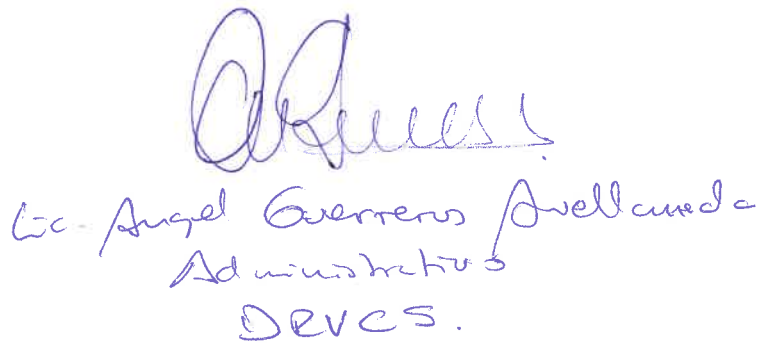 Lic. Angel Guerreros Avellaneda
Administrativo
DRVCS.